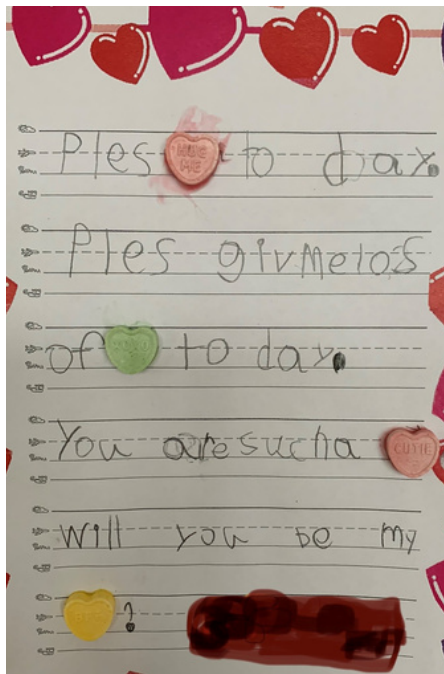 Ples HUG ME to day.
Ples givmelos
of to day.
You are sucha CUTIE
will you be my
?